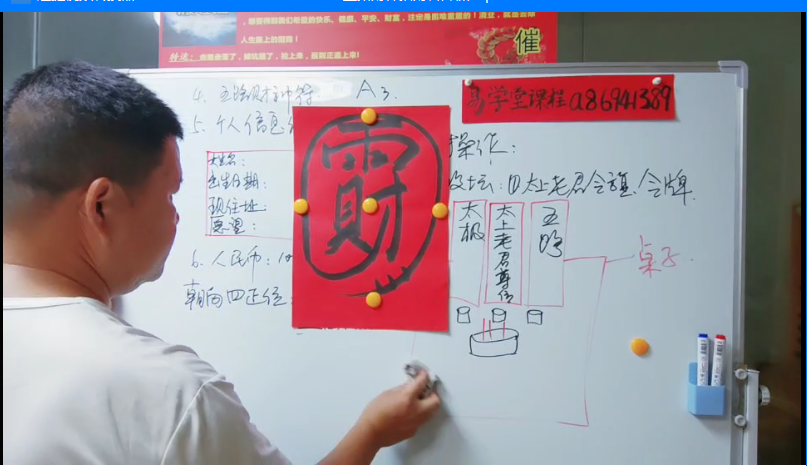 人生路上的坦途!
催
4. 五路财神符
A3.
易学堂课程a86941389
5. 个人信息
姓名:
出生日期:
现住址:
愿望:
6. 人民币:
朝向四正位:
財
操作:
设坛:①太上老君令旗、令牌.
太极
太上老君尊位
五路
桌子.